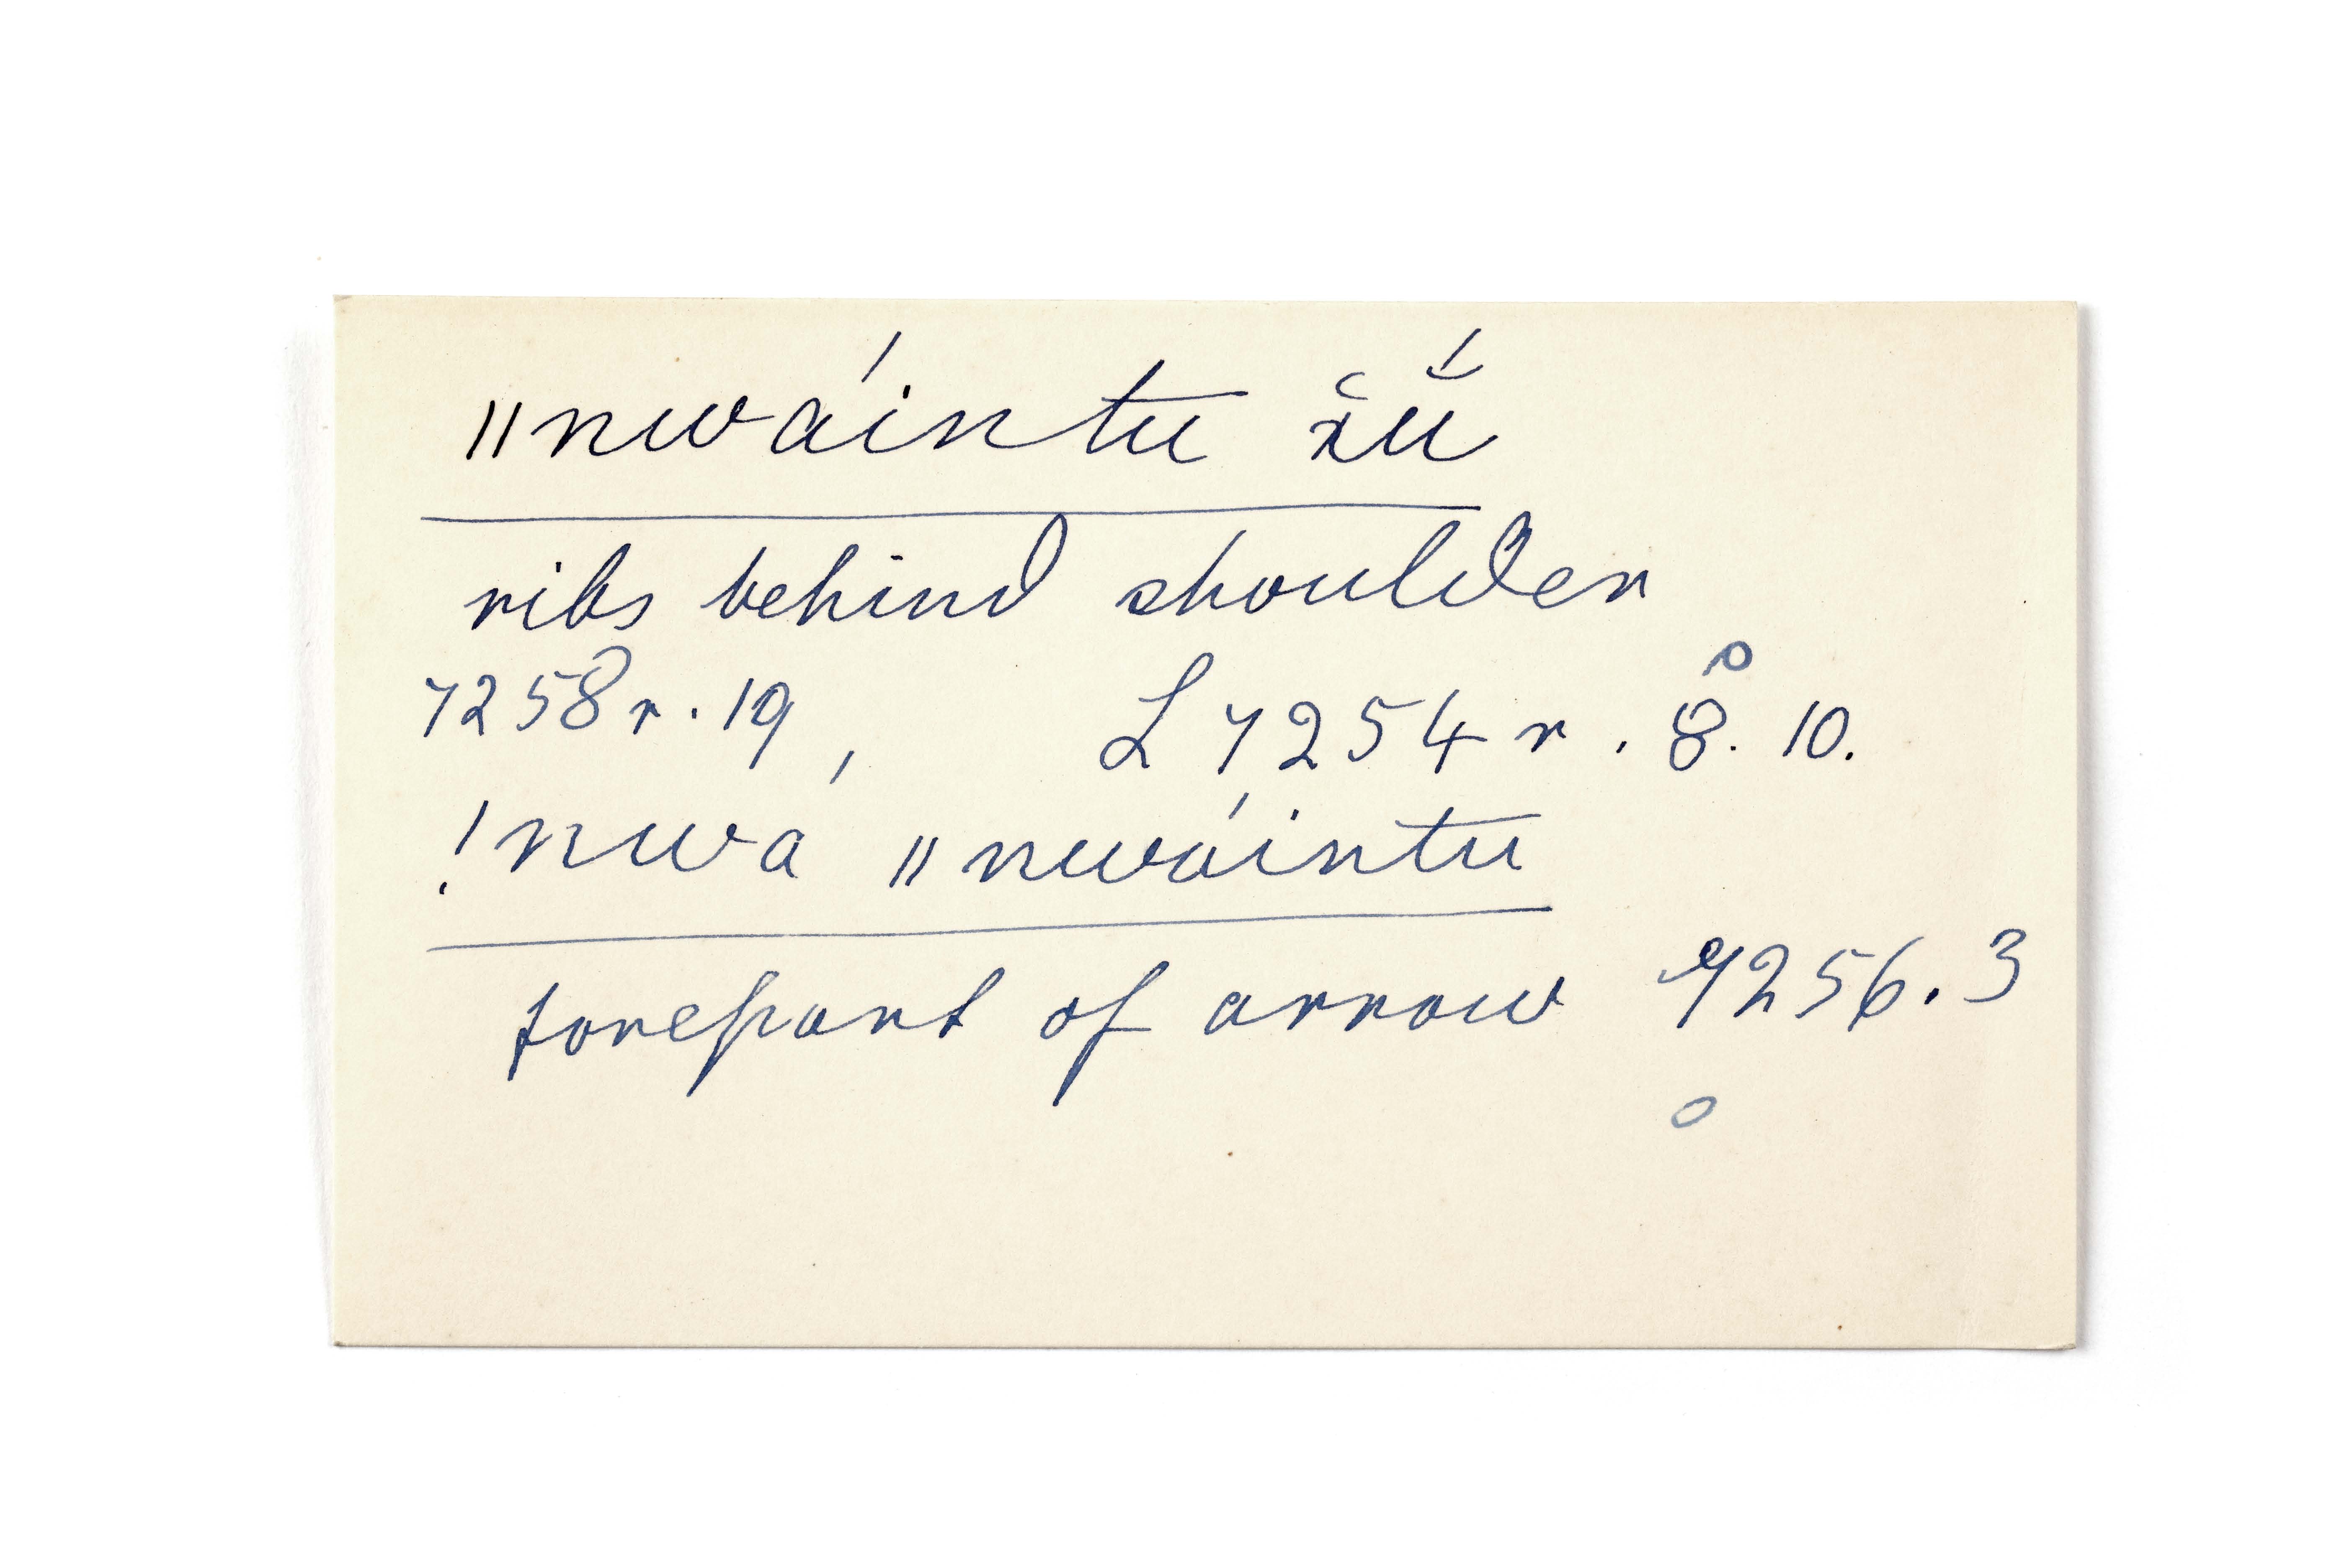 ǁnwáintu x̆ŭ́
ribs behind shoulder
7258r.19, L 7254 r. 8. 10.
!nwa ǁnwáintu
forepart of arrow 7256.3